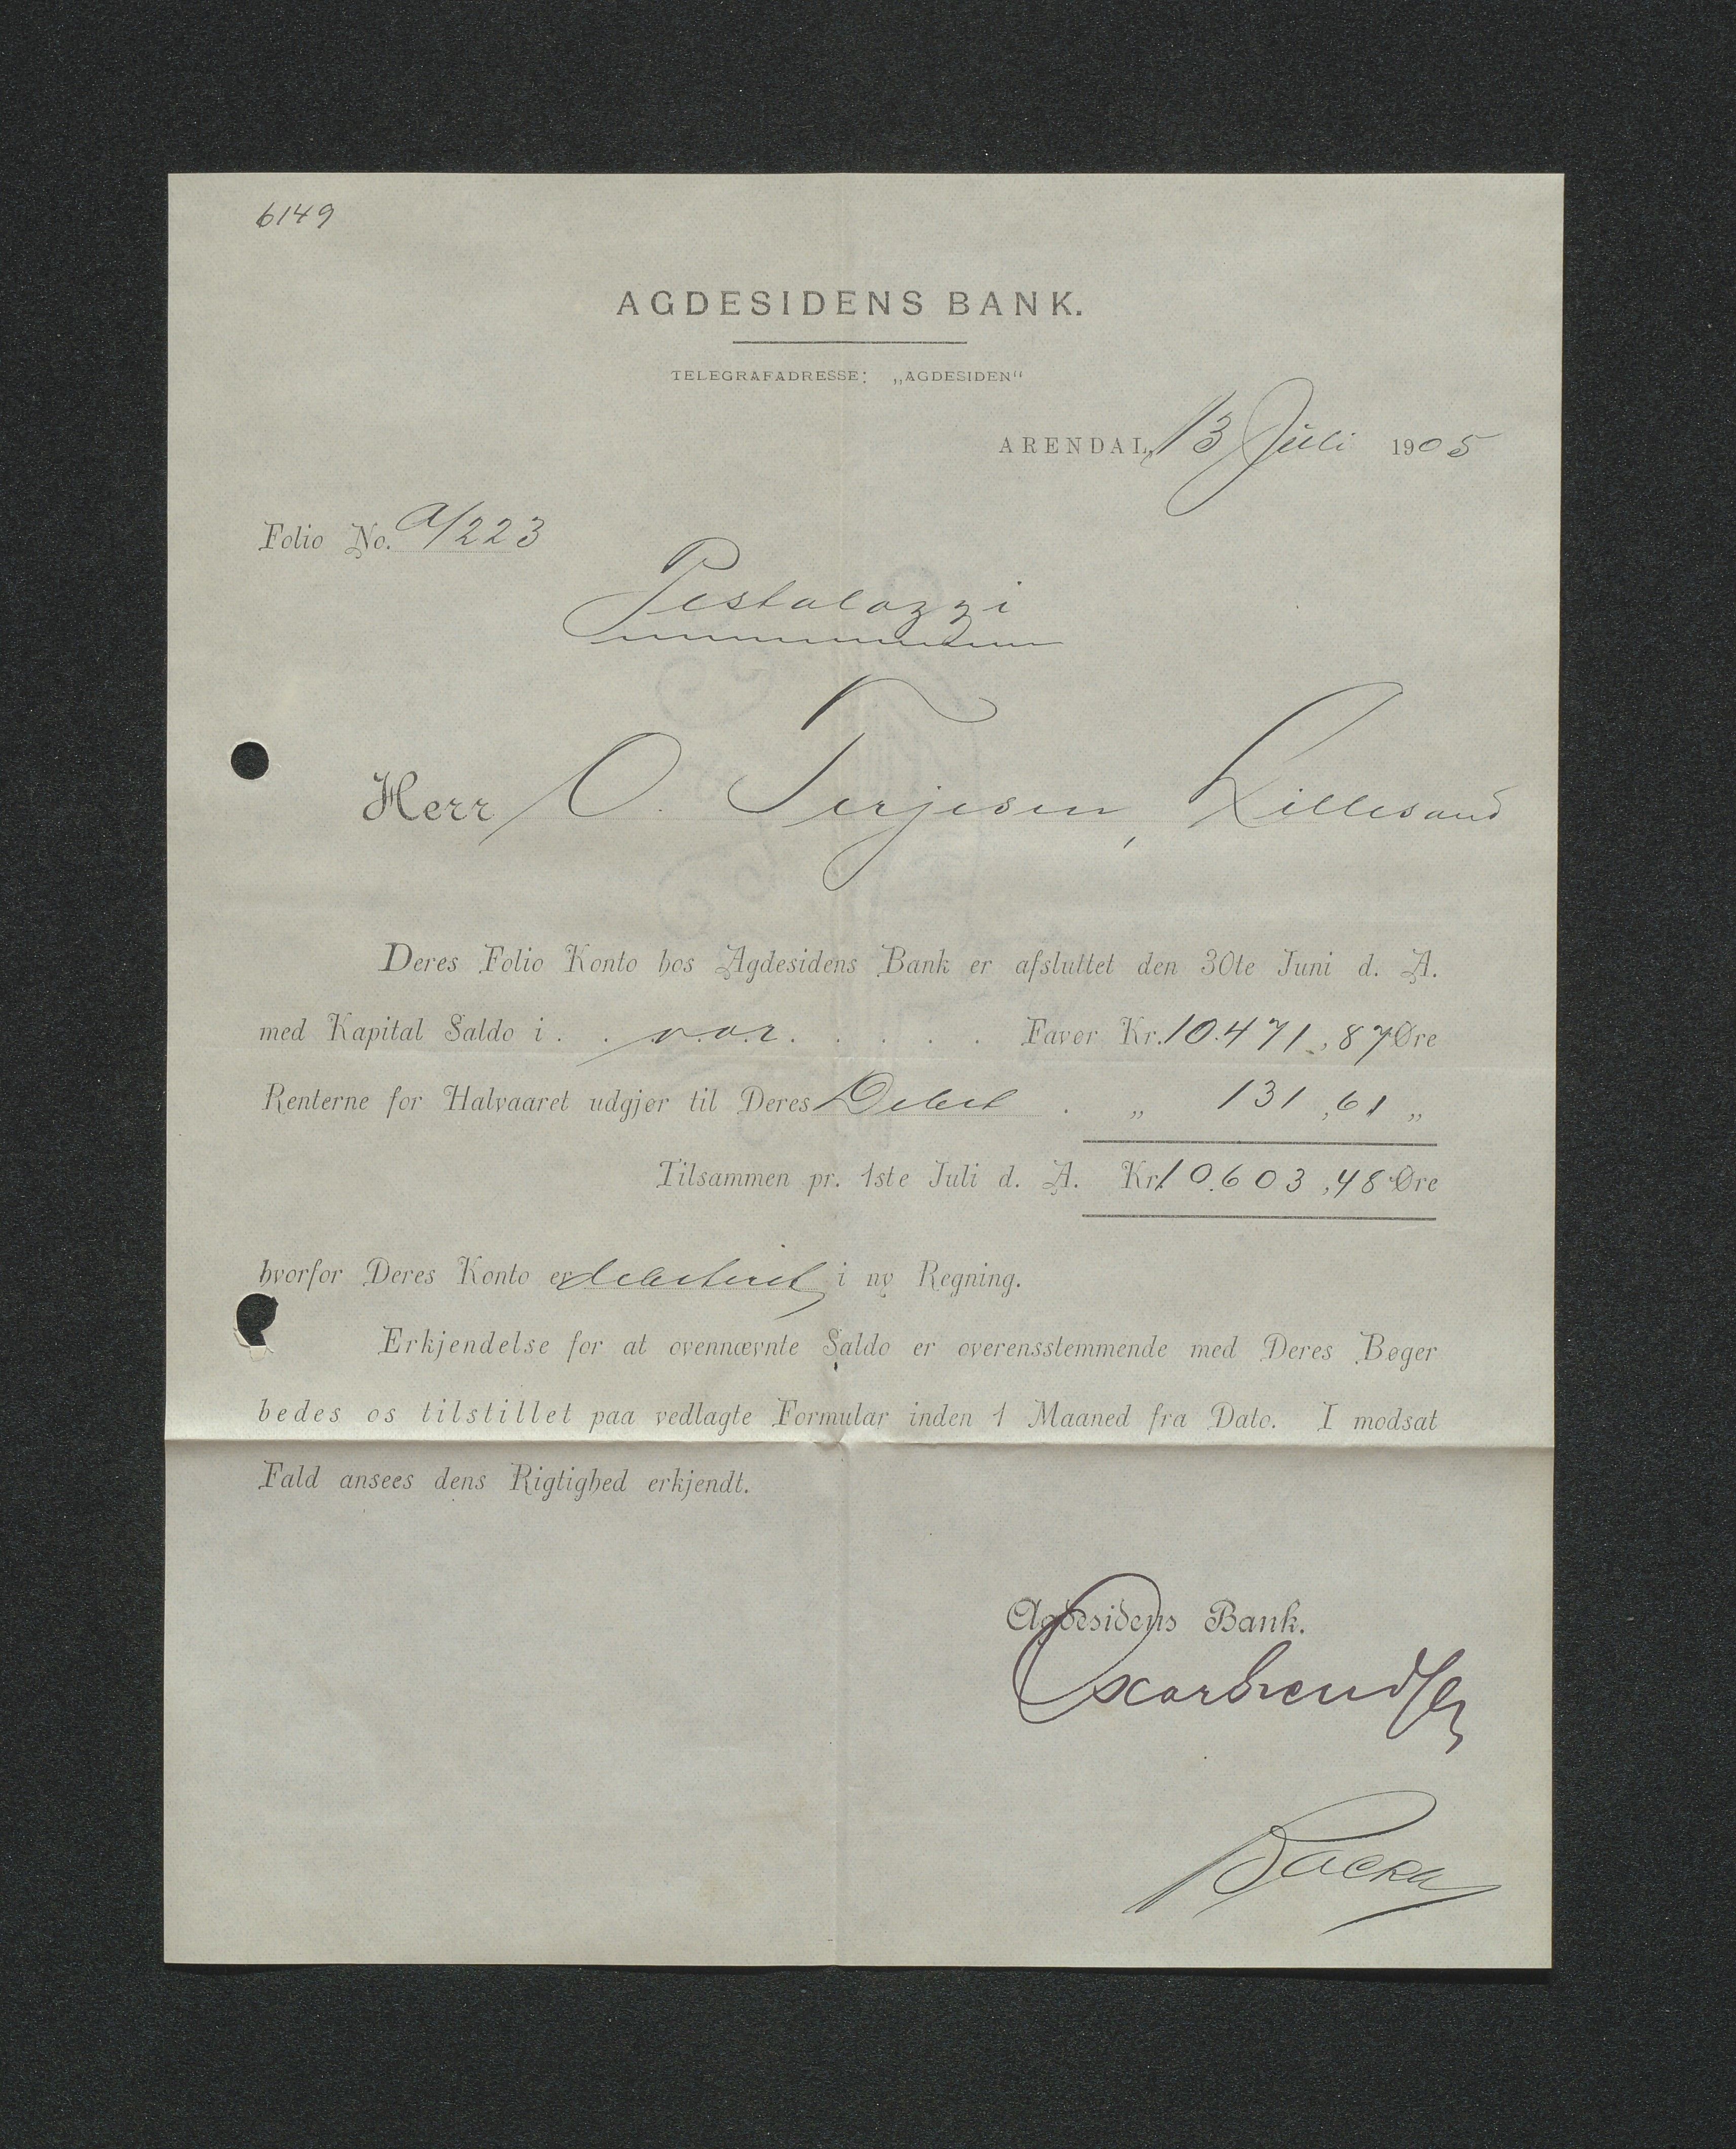 6149
AGDESIDENS BANK.
TELEGRAFADRESSE: „AGDESIDEN“
ARENDAL, 13 Juli 1905
Folio No. a/223
Pestalozzi
Herr O. Terjesen, Lillesand
Deres Folio Konto hos Agdesidens Bank er afsluttet den 30te Juni d. A.
med Kapital Saldo i . . vor . . . . . Favør Kr. 10.471,87 Øre
Renterne for Halvaaret udgjør til Deres Debet . „ 131,61 „
Tilsammen pr. 1ste Juli d. A. Kr. 10.603,48 Øre
hvorfor Deres Konto er debiteret i ny Regning.
Erkjendelse for at ovennævnte Saldo er overensstemmende med Deres Bøger
bedes os tilstillet paa vedlagte Formular inden 1 Maaned fra Dato. I modsat
Fald ansees dens Rigtighed erkjendt.
Agdesidens Bank.